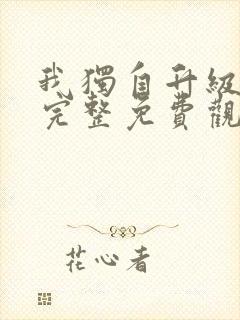 我獨自升級
完整免費觀
花心者